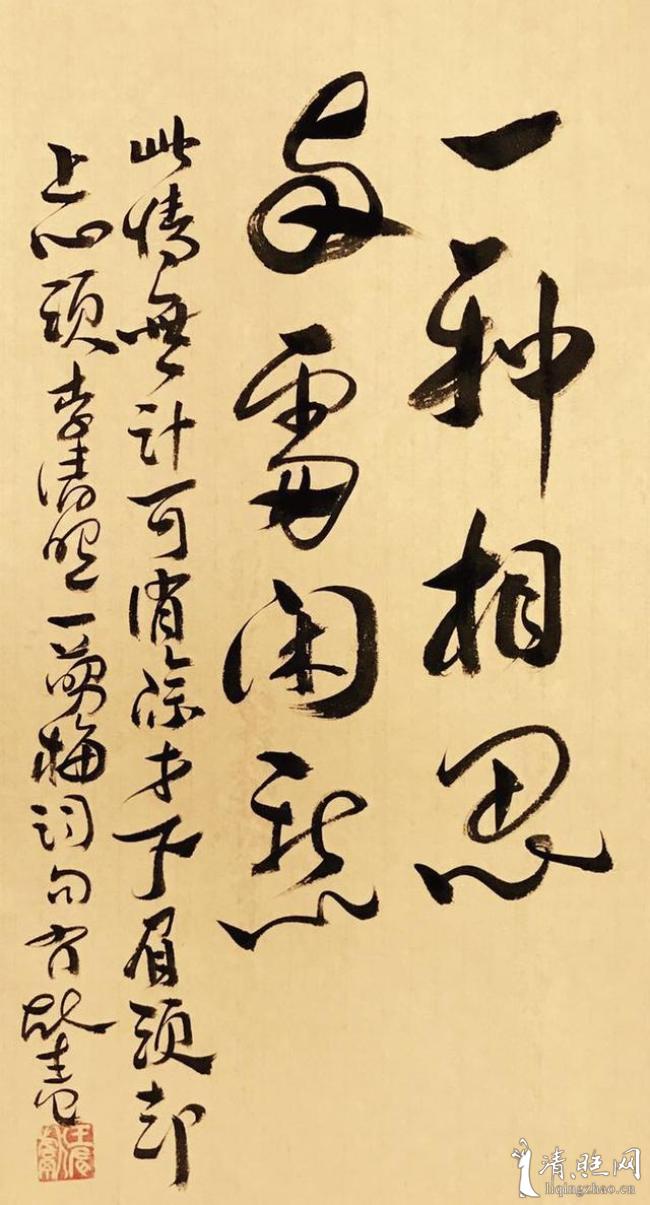 一种相思
两處闲愁
此情無计可消除才下眉頭却
上心頭 李清照一剪梅词句
清照网
liqingzhao.cn